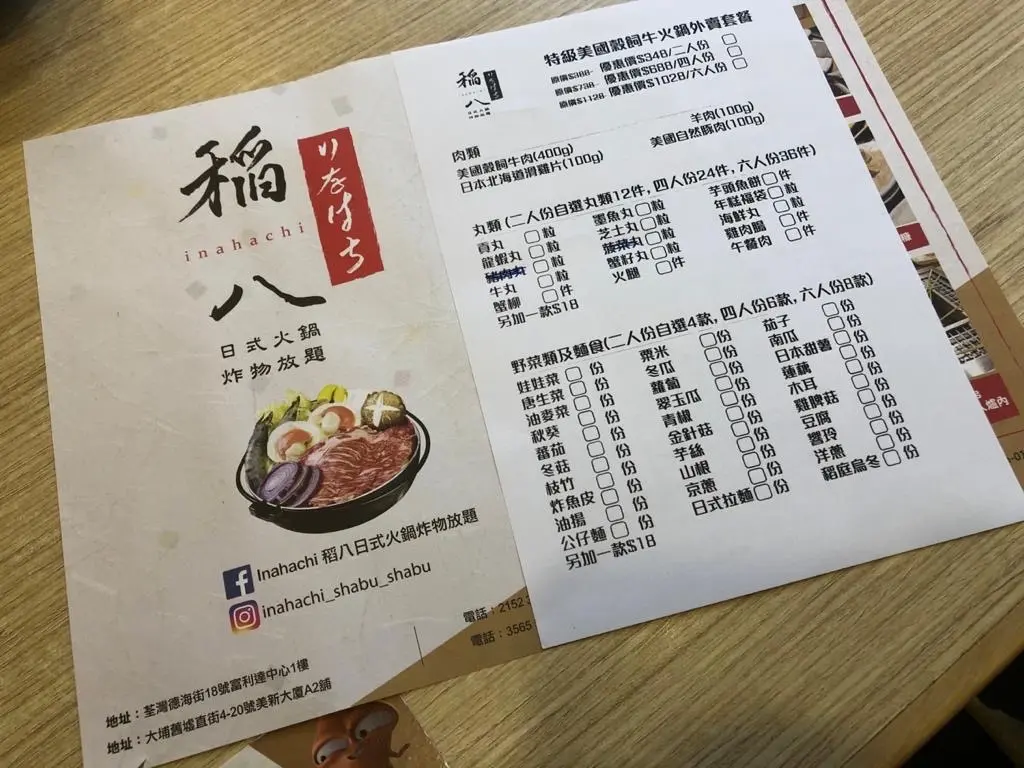 稻
いなはち
inahachi
八
日式火鍋
炸物放題
Inahachi 稻八日式火鍋炸物放題
inahachi_shabu_shabu
電話：2152
電話：3565
地址：荃灣德海街18號富利達中心1樓
地址：大埔舊墟直街4-20號美新大廈A2舖
稻
八
特級美國穀飼牛火鍋外賣套餐
原價$388- 優惠價$348/二人份
原價$738- 優惠價$688/四人份
原價$1128- 優惠價$1028/六人份
肉類
美國穀飼牛肉(400g) 羊肉(100g)
日本北海道滑雞片(100g) 美國自然豚肉(100g)
丸類(二人份自選丸類12件, 四人份24件, 六人份36件)
貢丸 粒 墨魚丸 粒 芋頭魚餅 件
龍蝦丸 粒 芝士丸 粒 年糕福袋 粒
豬肉丸 粒 菠菜丸 粒 海鮮丸 粒
牛丸 粒 蟹籽丸 粒 雞肉腸 件
蟹柳 件 火腿 件 午餐肉 件
另加一款$18
野菜類及麵食(二人份自選4款, 四人份6款, 六人份8款)
娃娃菜 份 粟米 份 茄子 份
唐生菜 份 冬瓜 份 南瓜 份
油麥菜 份 蘿蔔 份 日本甜薯 份
秋葵 份 翠玉瓜 份 蓮藕 份
蕃茄 份 青椒 份 木耳 份
冬菇 份 金針菇 份 雞脾菇 份
枝竹 份 芋絲 份 豆腐 份
炸魚皮 份 山根 份 響玲 份
油揚 份 京蔥 份 洋蔥 份
公仔麵 份 日式拉麵 份 稻庭烏冬 份
另加一款$18
爐內